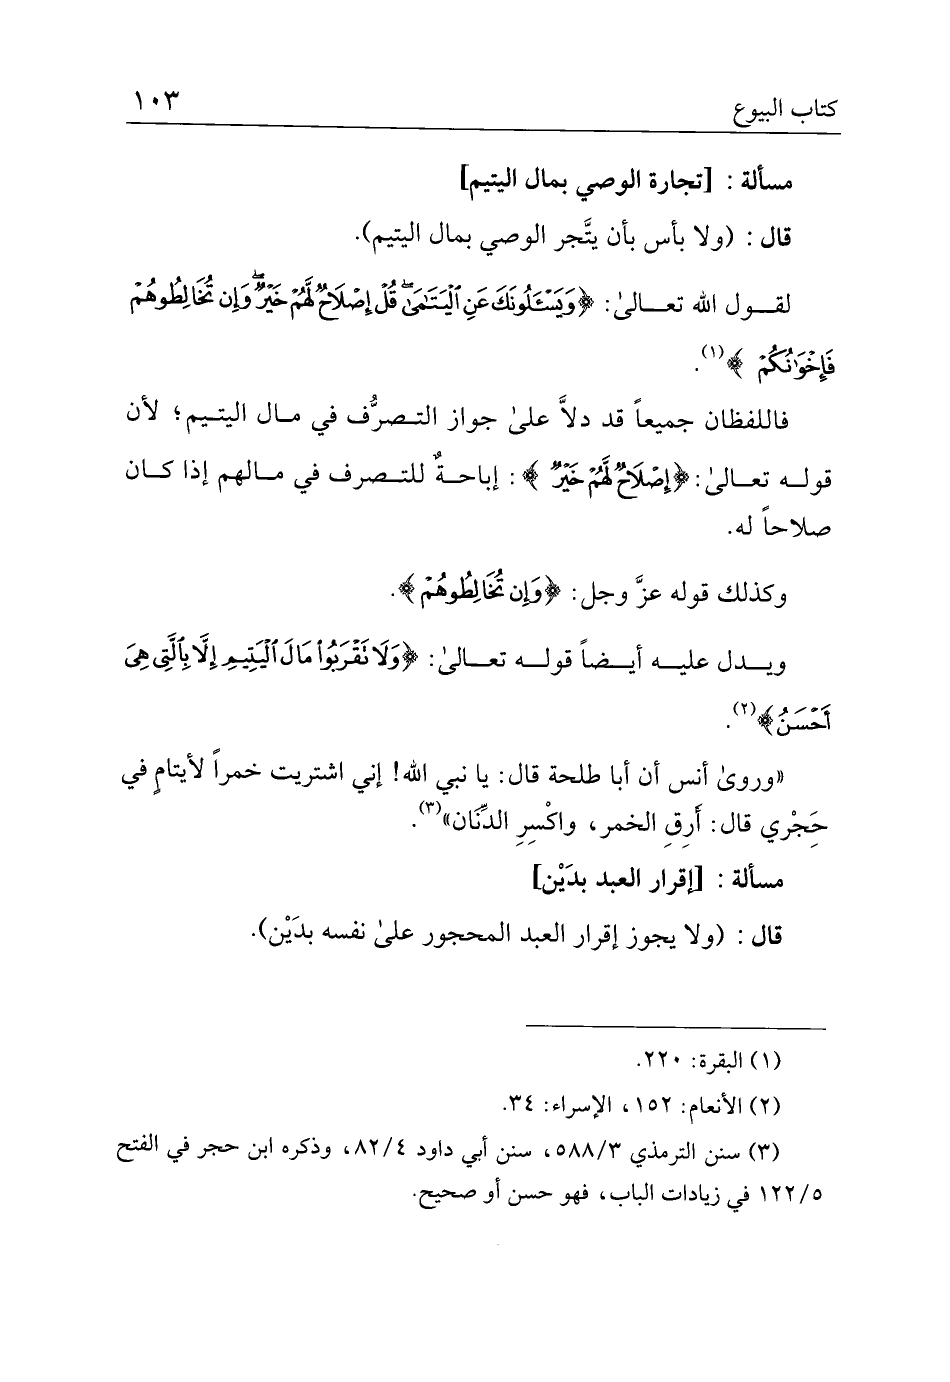 كتاب البيوع ١٠٣
مسألة : [تجارة الوصي بمال اليتيم]
قال : (ولا بأس بأن يتَّجر الوصي بمال اليتيم).
لقـول الله تعـالىٰ: ﴿وَيَسْـَٔلُونَكَ عَنِ ٱلْيَتَـٰمَىٰۖ قُلْ إِصْلَاحٌ لَّهُمْ خَيْرٌۖ وَإِن تُخَالِطُوهُمْ
فَإِخْوَٰنُكُمْ ﴾(١).
فاللفظان جميعاً قد دلاَّ علىٰ جواز التـصرُّف في مـال اليتـيم؛ لأن
قولـه تعـالىٰ: ﴿إِصْلَاحٌ لَّهُمْ خَيْرٌ ﴾ : إباحـةٌ للتـصرف في مـالهم إذا كـان
صلاحاً له.
وكذلك قوله عزَّ وجل: ﴿وَإِن تُخَالِطُوهُمْ ﴾.
ويـدل عليـه أيـضاً قولـه تعـالىٰ: ﴿وَلَا نَقْرَبُوا۟ مَالَ ٱلْيَتِيمِ إِلَّا بِٱلَّتِى هِىَ
أَحْسَنُ﴾(٢).
«وروىٰ أنس أن أبا طلحة قال: يا نبي الله! إني اشتريت خمراً لأيتامٍ في
حَجْرِي قال: أَرِقِ الخمر، واكْسِرِ الدِّنَان»(٣).
مسألة : [إقرار العبد بدَيْن]
قال : (ولا يجوز إقرار العبد المحجور علىٰ نفسه بدَيْن).
(١) البقرة: ٢٢٠.
(٢) الأنعام: ١٥٢، الإسراء: ٣٤.
(٣) سنن الترمذي ٥٨٨/٣، سنن أبي داود ٨٢/٤، وذكره ابن حجر في الفتح
١٢٢/٥ في زيادات الباب، فهو حسن أو صحيح.